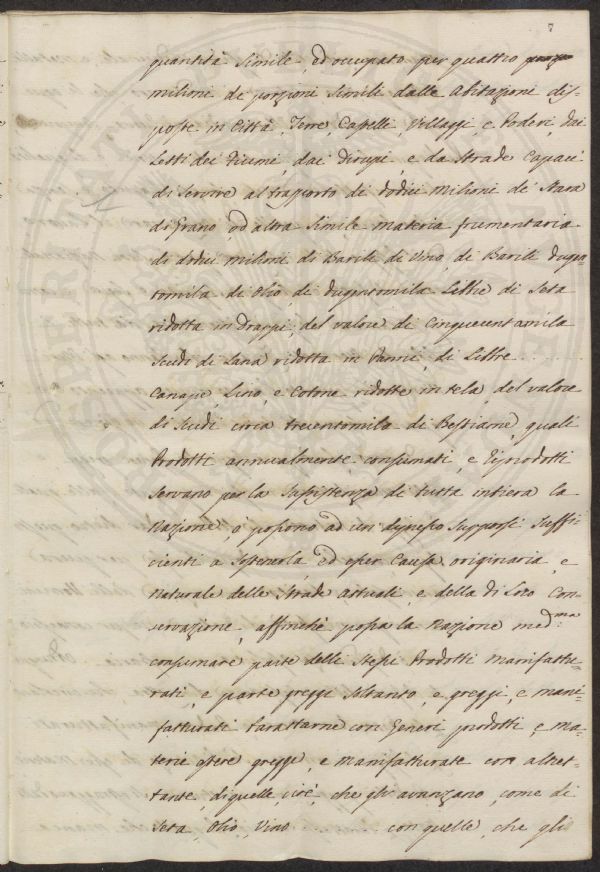 7
quantità simile, ed occupato per quattro
milioni di porzioni simili dalle Abitazioni dis-
poste in Città, Terre, Castelli, Villaggi, e Poderi, dai
Letti dei Fiumi, dai Dirupi, e da Strade capaci
di servire al trasporto di dodici milioni di Stara
di Grano, od altra simile materia frumentaria
di dodici milioni di Barili di Vino, di Barili dugen-
tomila di Olio di dugentomila Libbre di Seta
ridotta in drappi, del valore di Cinquecentomila
Scudi di Lana ridotta in Panni, di Libbre ....
Canape Lino, e Cotone ridotte in tela, del valore
di Scudi circa trecentomila di Bestiame, quali
Prodotti annualmente consumati, e riprodotti
servano per la sussistenza di tutta intiera la
Nazione, o possono ad un dipresso supporsi suffi-
cienti a sostenerla, ed esser Causa originaria, e
naturale delle Strade attuali, e della di loro con-
servazione, affinchè possa la Nazione med.ma
consumare parte delli stessi Prodotti manifattu-
rati, e parte greggi soltanto, e greggi, e mani-
fatturati barattarne con Generi prodotti, e ma-
terie estere gregge, e manifatturate con altret-
tante, di quelle, cioè, che gli avanzano, come di
Seta, Olio, Vino ........ con quelle, che gli